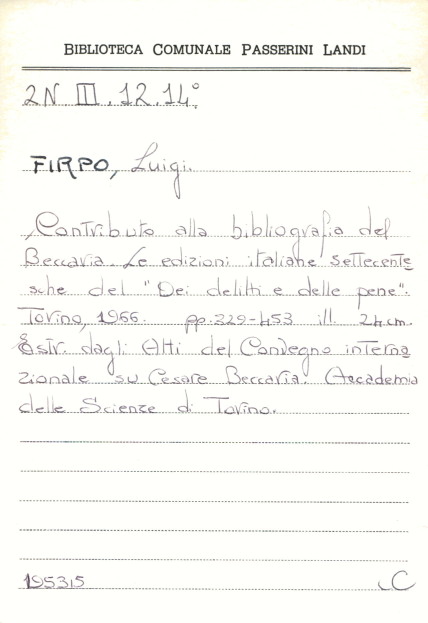 BIBLIOTECA COMUNALE PASSERINI LANDI
2N III.12.14°
FIRPO, Luigi.
Contributo alla bibliografia del
Beccaria. Le edizioni italiane settecente
sche del "Dei delitti e delle pene".
Torino, 1966. pp. 329-453 ill. 24 cm.
Estr. dagli Atti del Convegno interna
zionale su Cesare Beccaria. Accademia
delle Scienze di Torino.
195315 C